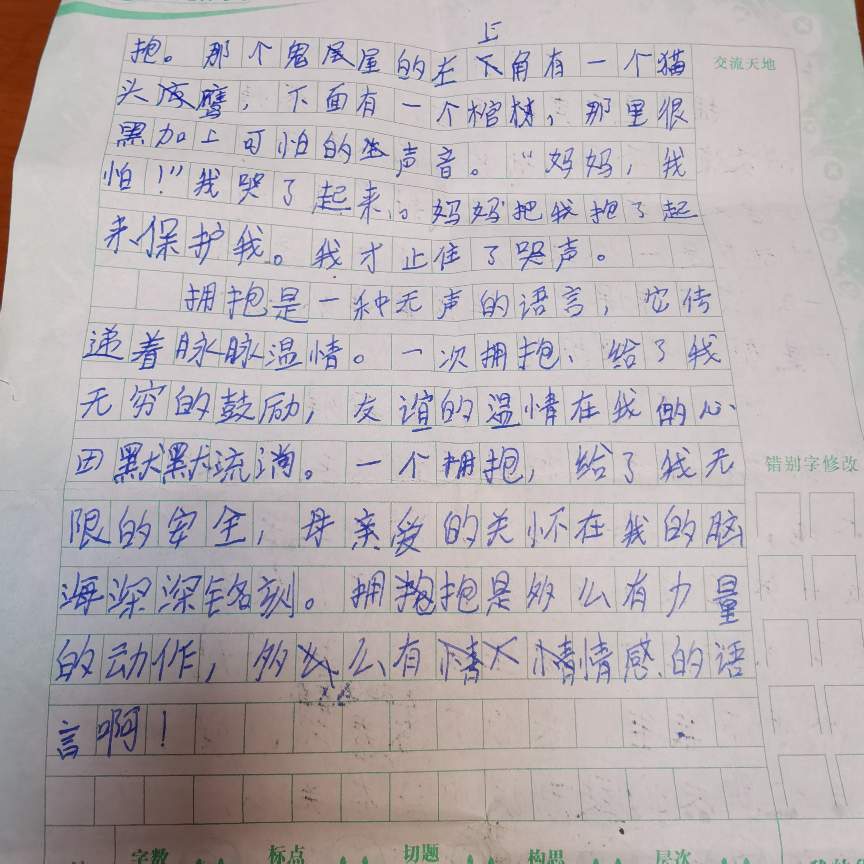 上
抱。那个鬼屋的左下角有一个猫
交流天地
头鹰，下面有一个棺材，那里很
黑加上可怕的声音。“妈妈，我
怕！”我哭了起来。妈妈把我抱了起
来保护我。我才止住了哭声。
拥抱是一种无声的语言，它传
递着脉脉温情。一次拥抱、给了我
无穷的鼓励，友谊的温情在我的心
田默默流淌。一个拥抱，给了我无
错别字修改
限的安全，母亲爱的关怀在我的脑
海深深铭刻。拥抱是多么有力量
的动作，多么有情感的语
言啊！
字数 标点 切题 构思 层次